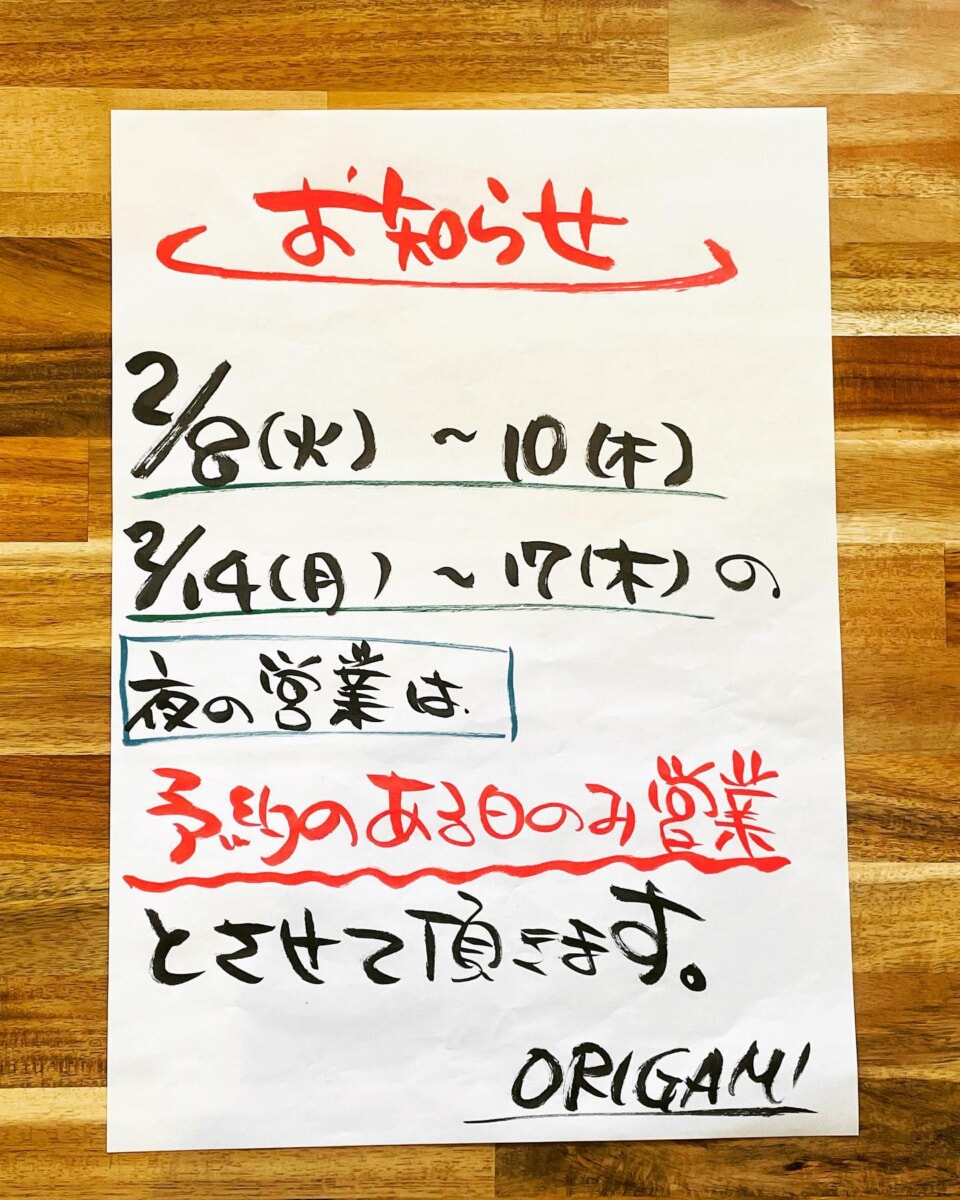 お知らせ
2/8(火) ～10(木)
2/14(月) ～17(木)の
夜の営業は
予約のある日のみ営業
とさせて頂きます。
ORIGAMI